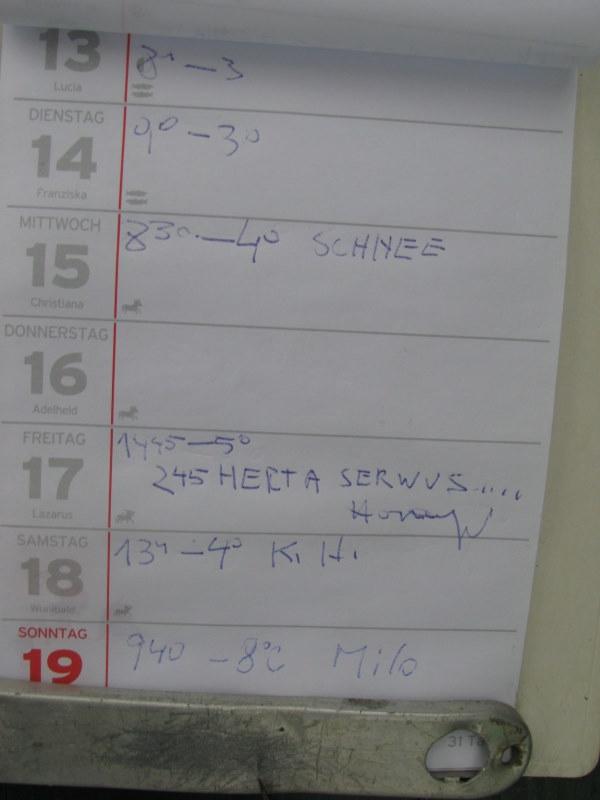 13
Lucia
8¹¹ — 3
DIENSTAG
14
Franziska
9⁰ — 3⁰
MITTWOCH
15
Christiana
8³⁰ — 4⁰ SCHNEE
DONNERSTAG
16
Adelheid
FREITAG
17
Lazarus
14⁴⁵ — 5⁰
245 HERTA SERWUS....
SAMSTAG
18
Wunibald
13¹¹ — 4⁰ K. H.
SONNTAG
19
9⁴⁰ — 8°C Milo